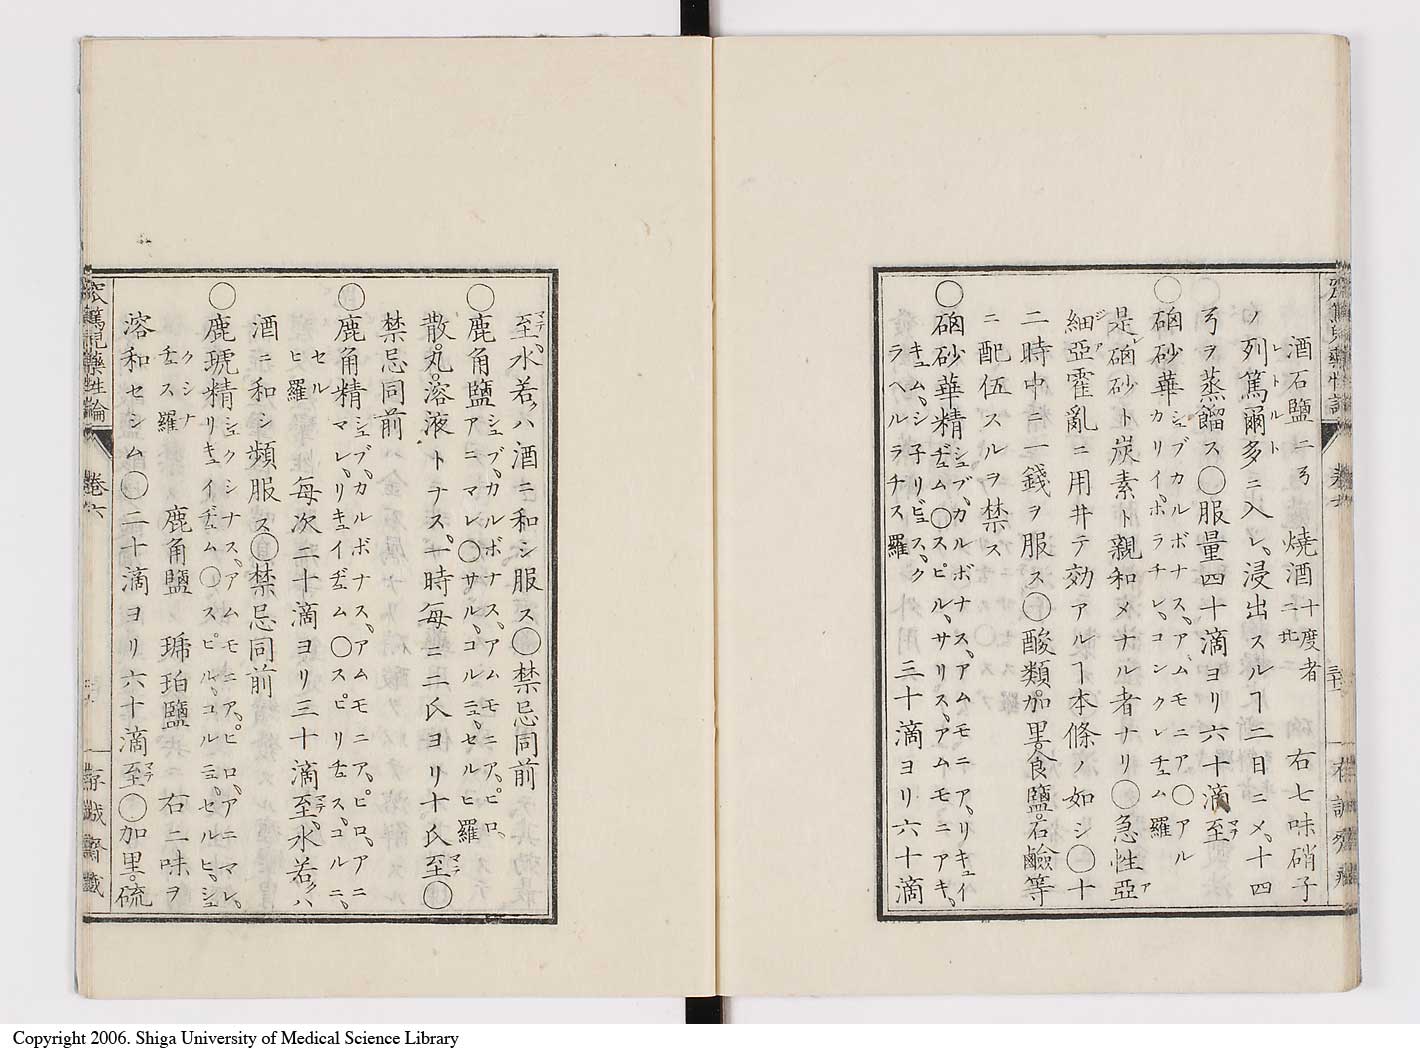 酒石塩ニ弓 焼酒十度者ニ北 右七味硝子
ノ列篤爾多ニ入レ、浸出スルヿ二日ニメ、十四
レトルト
弓ヲ蒸餾ス〇服量四十滴ヨリ六十滴至マテ
〇硇砂華シュブカルボナス、アムモニア〇アル
カリイ、ホラチレ、コンクレチュム羅
是レ硇砂ト炭素ト親和メナル者ナリ〇急性亞
細亞霍亂ニ用井テ効アルヿ本條ノ如シ〇十
二時中ニ一錢ヲ服ス〇酸類。加里。食鹽。石鹼等
ニ配伍スルヲ禁ス
〇硇砂華精シュブ、カルボナス、アムモニア、リキュイ
ヂュム〇スピル、サリス、アムモニアキ、
キュム、シ子リビュス、ク
ラヘルラチス羅
三十滴ヨリ六十滴
至マテ、水若クハ酒ニ和シ服ス〇禁忌同前
〇鹿角鹽シュブ、カルボナス、アムモニア、ピロ、
アニマレ、〇サル、コルニュ、セルヒ羅
散。丸。溶液トナス、一時毎ニ二氏ヨリ十氏至マテ〇
禁忌同前
〇鹿角精シュブ、カルボナス、アムモニア、ピロ、アニ
マレ、リキュイヂュム〇スピリチュス、コルニ、
セル
ヒ、羅
毎次二十滴ヨリ三十滴至マテ、水若クハ
酒ニ和シ頻服ス〇禁忌同前
〇鹿琥精シュクシナス、アムモニア、ピロ、アニマレ、
リキュイヂュム〇スピル、コルニュ、セルヒ、シュ
クシナ
チュス羅
鹿角鹽 琥珀鹽 右二味ヲ
溶和セシム〇二十滴ヨリ六十滴至マテ〇加里。硫
卷六
存誠齋藏